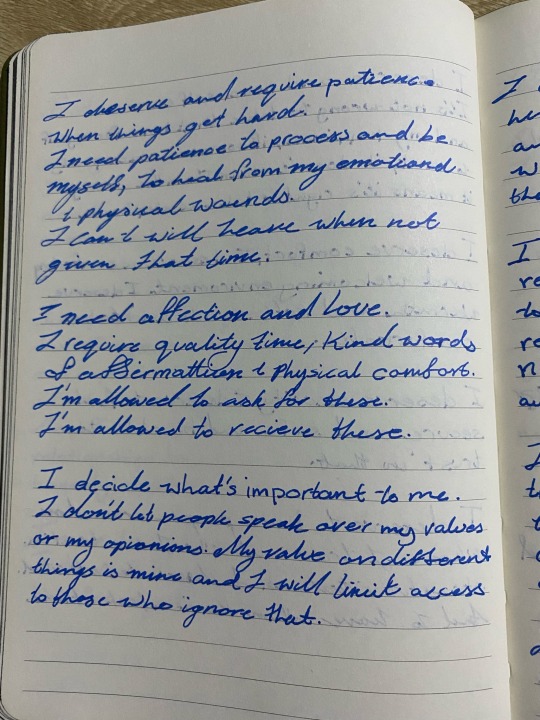 I deserve and require patience
when things get hard.
I need patience to process and be
myself, to heal from my emotional
& physical wounds.
I can & will leave when not
given that time.
I need affection and love.
I require quality time, Kind words
of affermattiten & Physical comfort.
I'm allowed to ask for these.
I'm allowed to recieve these.
I decide what's important to me.
I don't let people speak over my values
or my opionions. My value on different
things is mine and I will limit access
to those who ignore that.
I
I